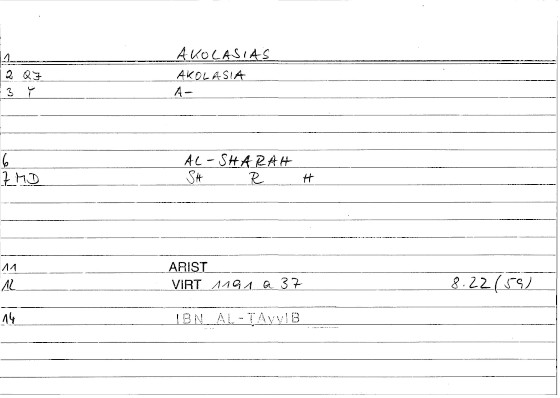 1 AKOLASIAS
2 Q7 AKOLASIA
3 Y A-
6 AL-SHARAH
7 MD SH R H
11 ARIST
12 VIRT 1191 a 37 8.22 (59)
14 IBN AL-TAyyIB